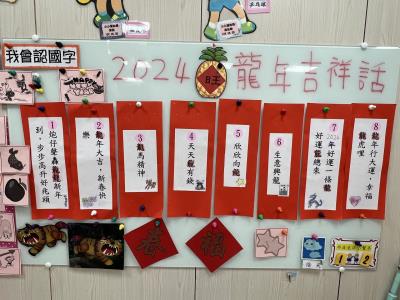 我會認國字
2024 龍年吉祥話
旺
1
炮仔聲轟龍龍新年
到，步步高升好兆頭
2
龍年大吉，新春快
樂
3
龍馬精神
4
天天龍有錢
5
欣欣向龍
6
生意興龍
7
2024年好運一條龍
好運龍總來
8
龍年行大運，幸福
龍虎哩
春
福
1 2